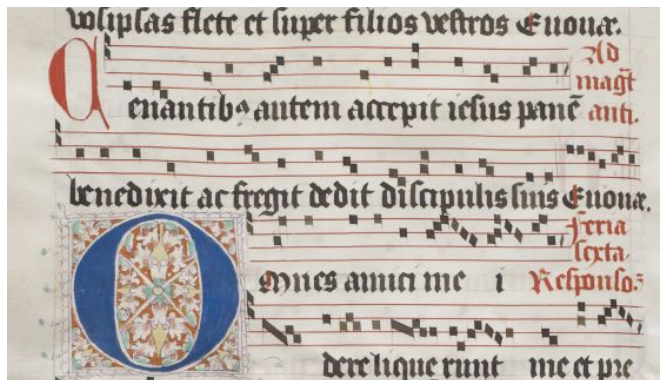 vosipsas flete et super filios vestros Euouae.
Ad
magt̄
Cenantibꝰ autem accepit iesus panē anti.
benedixit ac fregit dedit discipulis suis Euouae.
feria
sexta.
Omnes amici me i Responso.
dere lique runt me et pre